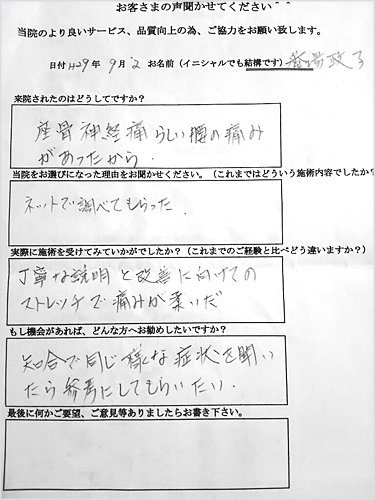 お客さまの声聞かせてください＾＾
当院のより良いサービス、品質向上の為、ご協力をお願い致します。
日付 H29年 9月 2 お名前（イニシャルでも結構です）
来院されたのはどうしてですか？
座骨神経痛らしい腰の痛み
があったから.
当院をお選びになった理由をお聞かせください。（これまではどういう施術内容でしたか？
ネットで調べてもらった.
実際に施術を受けてみていかがでしたか？（これまでのご経験と比べどう違いますか？）
丁寧な説明と改善に向けての
ストレッチで痛みが柔いだ
もし機会があれば、どんな方へお勧めしたいですか？
知合で同じ様な症状を聞い
たら参考にしてもらいたい.
最後に何かご要望、ご意見等ありましたらお書き下さい。